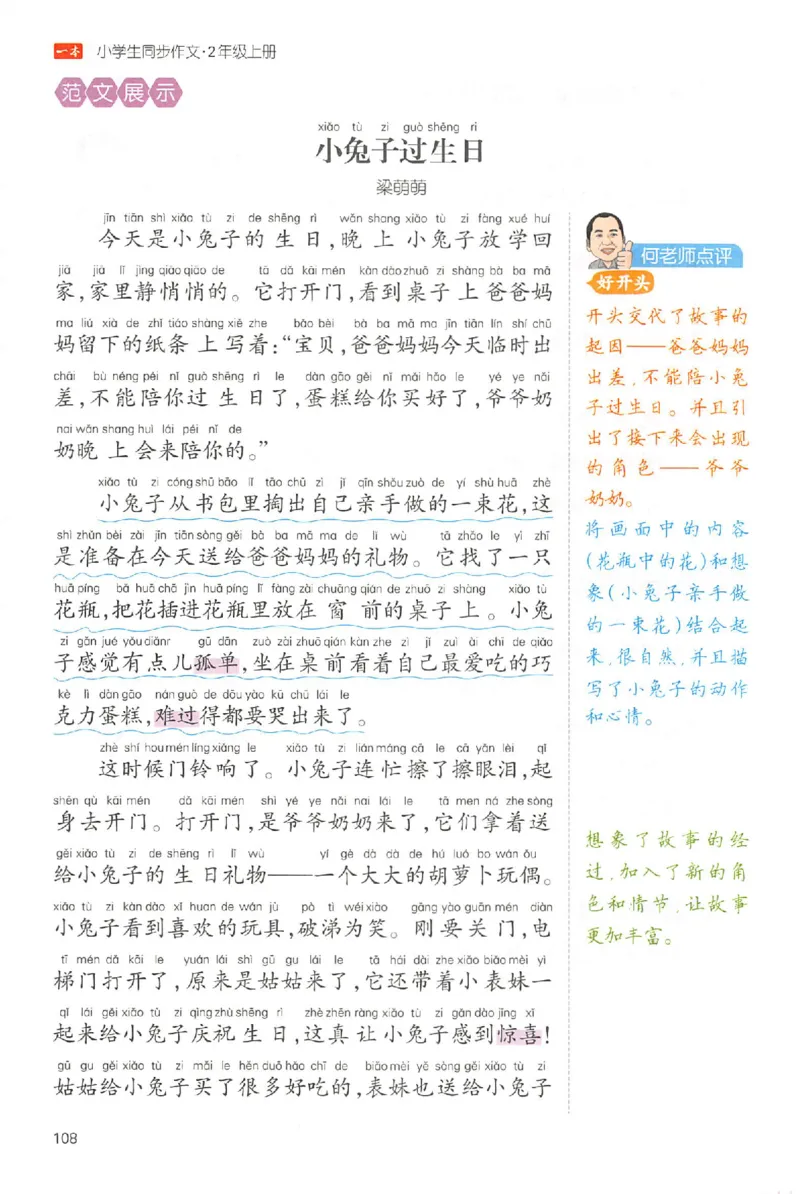 一本 小学生同步作文·2年级上册
范文展示
xiǎo tù zi guò shēng rì
小兔子过生日
梁萌萌
jīn tiān shì xiǎo tù zi de shēng rì wǎn shang xiǎo tù zi fàng xué huí
今天是小兔子的生日,晚上小兔子放学回
jiā jiā lǐ jìng qiāo qiāo de tā dǎ kāi mén kàn dào zhuō zi shàng bà ba mā
家,家里静悄悄的。它打开门,看到桌子上爸爸妈
ma liú xià de zhǐ tiáo shàng xiě zhe bǎo bèi bà ba mā ma jīn tiān lín shí chū
妈留下的纸条上写着:“宝贝,爸爸妈妈今天临时出
chāi bù néng péi nǐ guò shēng rì le dàn gāo gěi nǐ mǎi hǎo le yé ye nǎi
差,不能陪你过生日了,蛋糕给你买好了,爷爷奶
nai wǎn shang huì lái péi nǐ de
奶晚上会来陪你的。”
xiǎo tù zi cóng shū bāo lǐ tāo chū zì jǐ qīn shǒu zuò de yí shù huā zhè
小兔子从书包里掏出自己亲手做的一束花,这
shì zhǔn bèi zài jīn tiān sòng gěi bà ba mā ma de lǐ wù tā zhǎo le yì zhī
是准备在今天送给爸爸妈妈的礼物。它找了一只
huā píng bǎ huā chā jìn huā píng lǐ fàng zài chuāng qián de zhuō zi shàng xiǎo tù
花瓶,把花插进花瓶里放在窗前的桌子上。小兔
zi gǎn jué yǒu diǎnr gū dān zuò zài zhuō qián kàn zhe zì jǐ zuì ài chī de qiǎo
子感觉有点儿孤单,坐在桌前看着自己最爱吃的巧
kè lì dàn gāo nán guò de dōu yào kū chū lái le
克力蛋糕,难过得都要哭出来了。
zhè shí hou mén líng xiǎng le xiǎo tù zi lián máng cā le cā yǎn lèi qǐ
这时候门铃响了。小兔子连忙擦了擦眼泪,起
shēn qù kāi mén dǎ kāi mén shì yé ye nǎi nai lái le tā men ná zhe sòng
身去开门。打开门,是爷爷奶奶来了,它们拿着送
gěi xiǎo tù zi de shēng rì lǐ wù yí gè dà dà de hú luó bo wán ǒu
给小兔子的生日礼物——一个大大的胡萝卜玩偶。
xiǎo tù zi kàn dào xǐ huan de wán jù pò tì wéi xiào gāng yào guān mén diàn
小兔子看到喜欢的玩具,破涕为笑。刚要关门,电
tī mén dǎ kāi le yuán lái shì gū gu lái le tā hái dài zhe xiǎo biǎo mèi yì
梯门打开了,原来是姑姑来了,它还带着小表妹一
qǐ lái gěi xiǎo tù zi qìng zhù shēng rì zhè zhēn ràng xiǎo tù zi gǎn dào jīng xǐ
起来给小兔子庆祝生日,这真让小兔子感到惊喜!
gū gu gěi xiǎo tù zi mǎi le hěn duō hǎo chī de biǎo mèi yě sòng gěi xiǎo tù zi
姑姑给小兔子买了很多好吃的,表妹也送给小兔子
108
何老师点评
好开头
开头交代了故事的
起因——爸爸妈妈
出差,不能陪小兔
子过生日。并且引
出了接下来会出现
的角色——爷爷
奶奶。
将画面中的内容
(花瓶中的花)和想
象(小兔子亲手做
的一束花)结合起
来,很自然,并且描
写了小兔子的动作
和心情。
想象了故事的经
过,加入了新的角
色和情节,让故事
更加丰富。